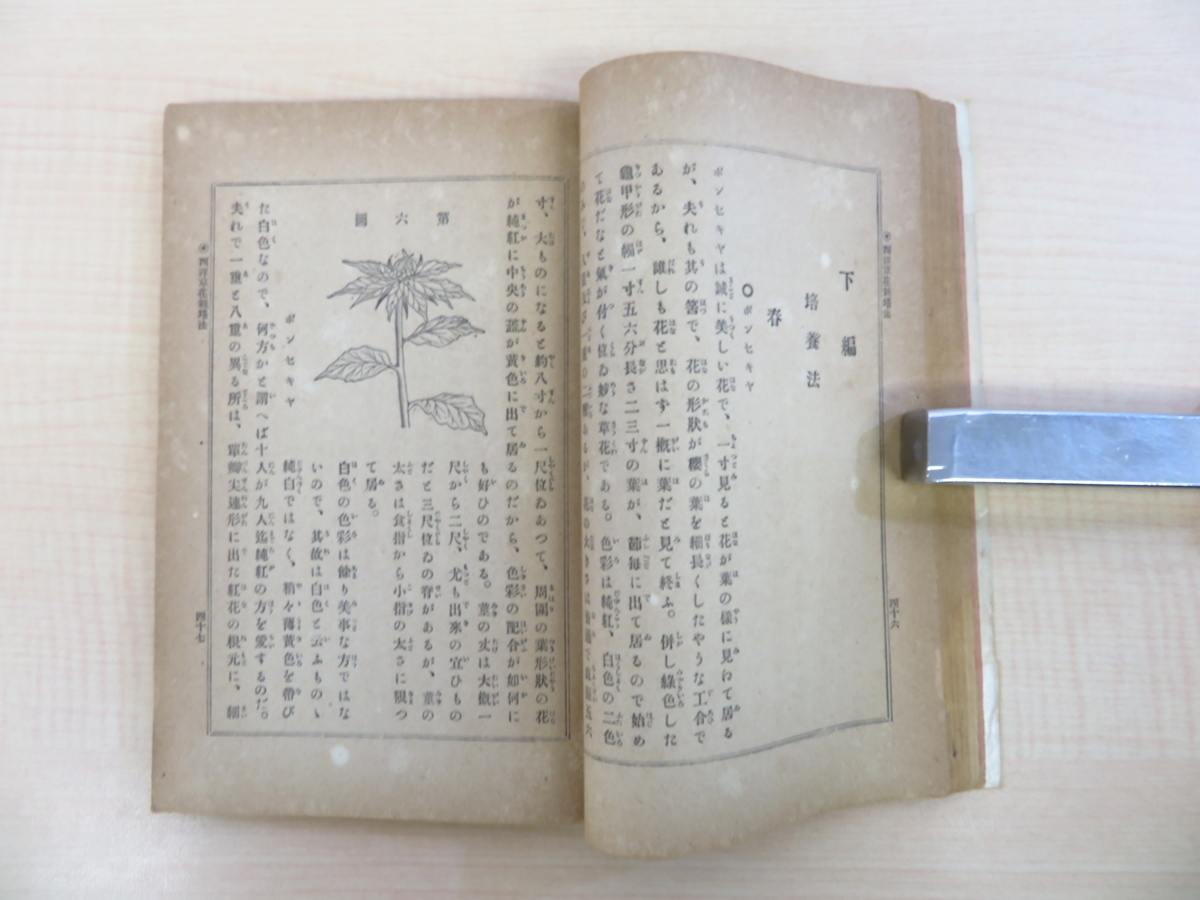 下編
培養法
春
○ポンセキヤ
ポンセキヤは誠に美しい花で、一寸見ると花が葉の様に見わて居る
が、夫れも其の筈で、花の形狀が櫻の葉を細長くしたやうな工合で
あるから、誰しも花と思はず一槪に葉だと見て終ふ。併し綠色した
龜甲形の幅一寸五六分長さ二三寸の葉が、節每に出て居るので始め
て花だなと氣が付く位ゐ妙な草花である。色彩は純紅、白色の二色
四十六
寸、大ものになると約八寸から一尺位ゐあつて、周圍の葉形狀の花
が純紅に中央の蕋が黃色に出て居るのだから、色彩の配合が如何に
も好ひのである。莖の丈は大槪一
尺から二尺、尤も出來の宜ひもの
だと三尺位ゐの脊があるが、莖の
太さは食指から小指の太さに限つ
て居る。
白色の色彩は餘り美事な方ではな
いので、其故は白色と云ふものゝ
純白ではなく、稍々薄黃色を帶び
第六圖
ポンセキヤ
た白色なので、何方かと謂へば十人が九人迄純紅の方を愛するのだ。
夫れで一重と八重の異る所は、單瓣尖連形に出た紅花の根元に、細
四十七